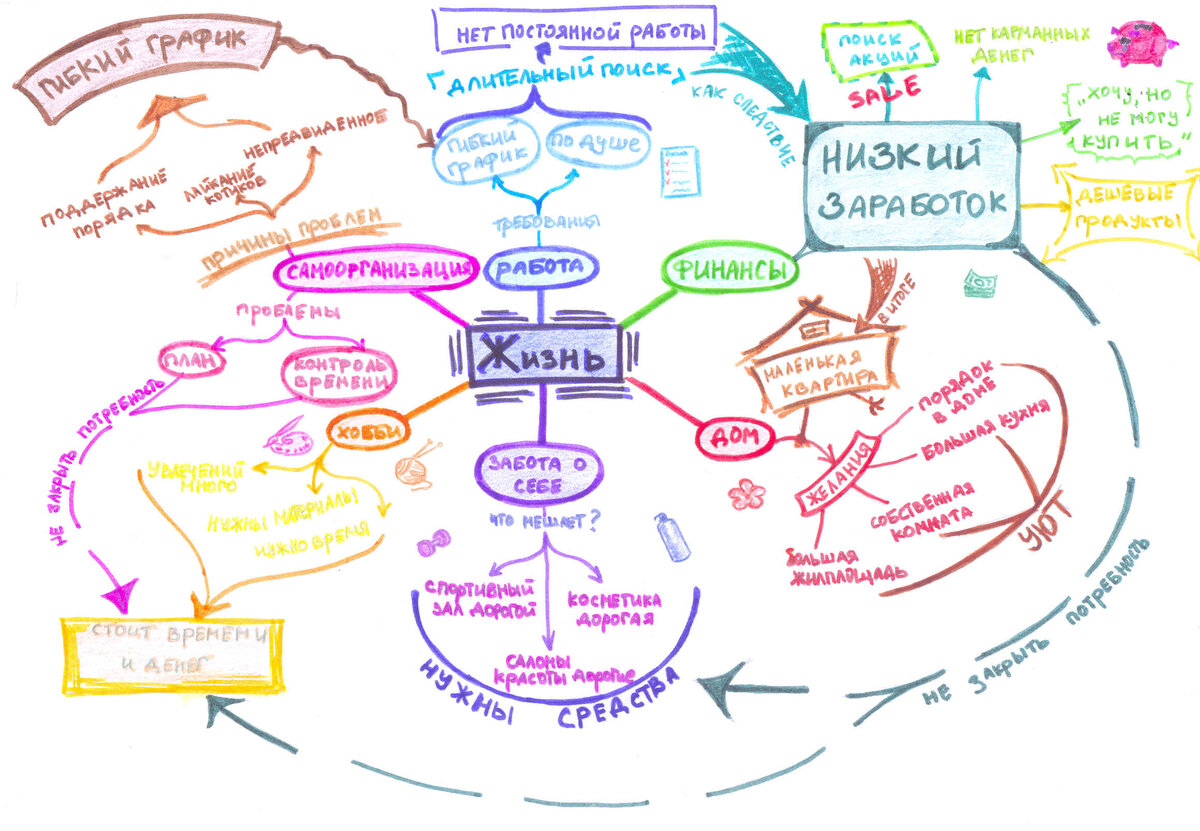 ГИБКИЙ ГРАФИК
НЕПРЕДВИДЕННОЕ
ЛАЙКАНИЕ
КОТИКОВ
ПОДДЕРЖАНИЕ
ПОРЯДКА
ПРИЧИНЫ ПРОБЛЕМ
САМООРГАНИЗАЦИЯ
ПРОБЛЕМЫ
ПЛАН
КОНТРОЛЬ
ВРЕМЕНИ
НЕ ЗАКРЫТЬ ПОТРЕБНОСТЬ
НЕТ ПОСТОЯННОЙ РАБОТЫ
ДЛИТЕЛЬНЫЙ ПОИСК
ГИБКИЙ
ГРАФИК
ПО ДУШЕ
ТРЕБОВАНИЯ
РАБОТА
КАК СЛЕДСТВИЕ
ПОИСК
АКЦИЙ
SALE
НЕТ КАРМАННЫХ
ДЕНЕГ
"ХОЧУ, НО
НЕ МОГУ
КУПИТЬ"
ДЕШЁВЫЕ
ПРОДУКТЫ
НИЗКИЙ
ЗАРАБОТОК
ФИНАНСЫ
В ИТОГЕ
МАЛЕНЬКАЯ
КВАРТИРА
Жизнь
ДОМ
ЖЕЛАНИЯ
ПОРЯДОК
В ДОМЕ
БОЛЬШАЯ КУХНЯ
СОБСТВЕННАЯ
КОМНАТА
БОЛЬШАЯ
ЖИЛПЛОЩАДЬ
УЮТ
НЕ ЗАКРЫТЬ ПОТРЕБНОСТЬ
ХОББИ
УВЛЕЧЕНИЙ
МНОГО
НУЖНЫ МАТЕРИАЛЫ
НУЖНО ВРЕМЯ
СТОИТ ВРЕМЕНИ
И ДЕНЕГ
ЗАБОТА О
СЕБЕ
ЧТО МЕШАЕТ?
СПОРТИВНЫЙ
ЗАЛ ДОРОГОЙ
КОСМЕТИКА
ДОРОГАЯ
САЛОНЫ
КРАСОТЫ ДОРОГИЕ
НУЖНЫ СРЕДСТВА